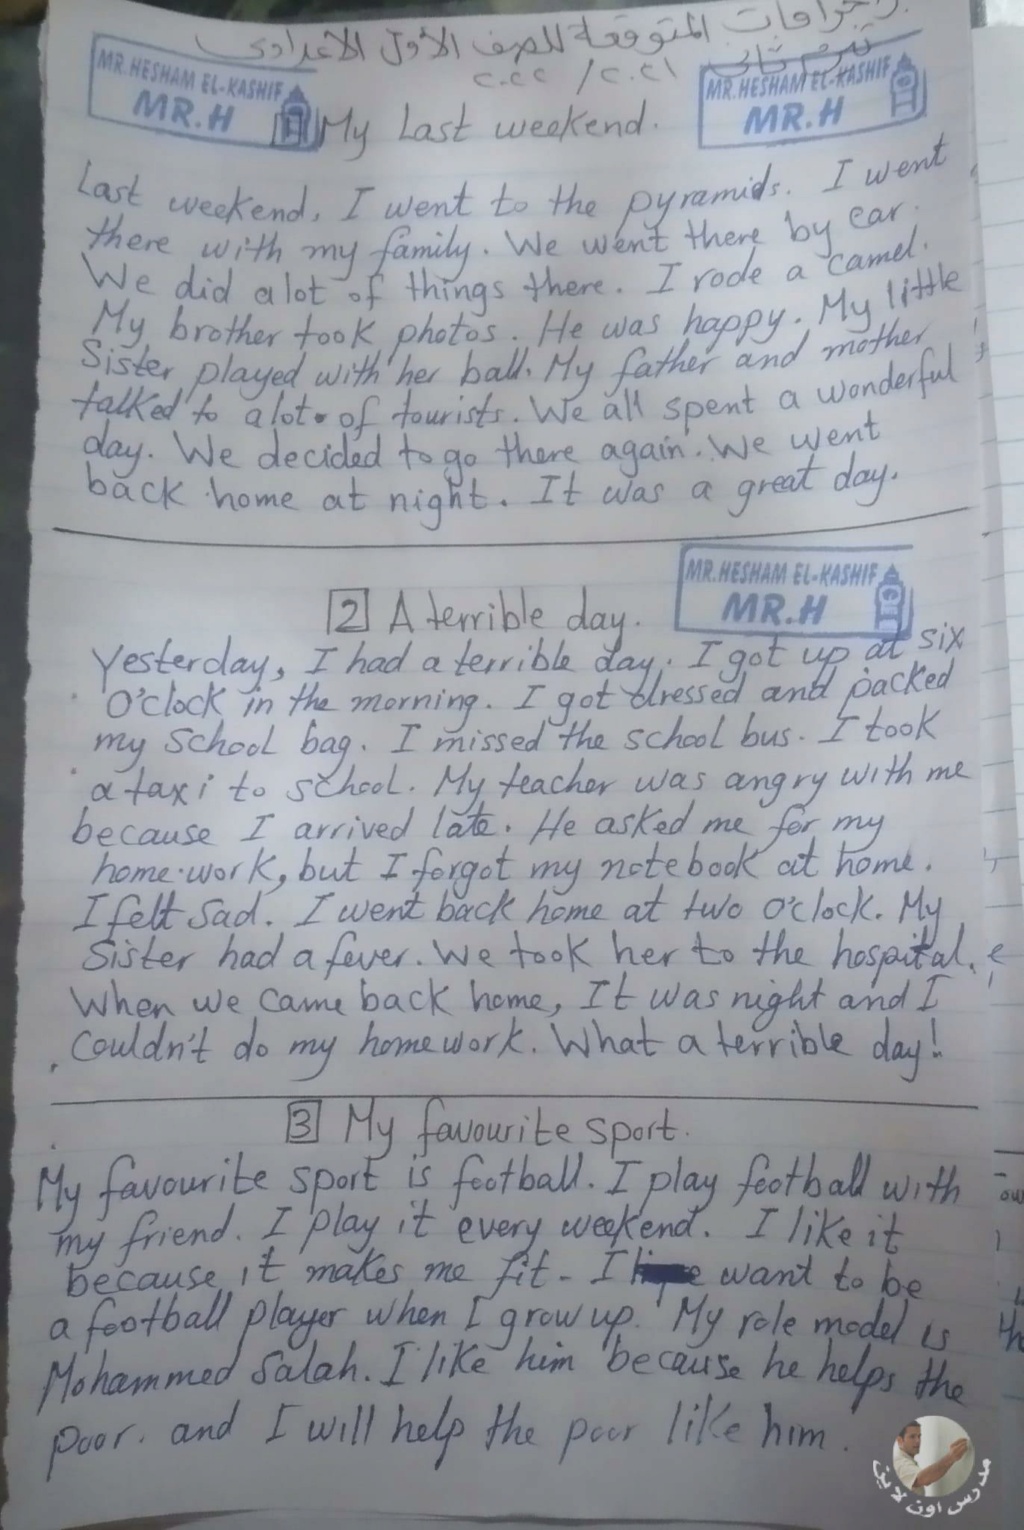 المتوقعة للصف الأول الاعدادى
ترم ثانى ٢٠٢١ / ٢٠٢٢
MR.HESHAM EL-KASHIF
MR.H
MR.HESHAM EL-KASHIF
MR.H
My Last weekend.
Last weekend, I went to the pyramids. I went
there with my family. We went there by car.
We did alot of things there. I rode a camel.
My brother took photos. He was happy. My little
Sister played with her ball. My father and mother
talked to alot of tourists. We all spent a wonderful
day. We decided to go there again. We went
back home at night. It was a great day.
MR.HESHAM EL-KASHIF
MR.H
2 A terrible day.
Yesterday, I had a terrible day. I got up at six
O'clock in the morning. I got dressed and packed
my school bag. I missed the school bus. I took
a taxi to school. My teacher was angry with me
because I arrived late. He asked me for my
home.work, but I forgot my notebook at home.
I felt sad. I went back home at two o'clock. My
Sister had a fever. We took her to the hospital.
When we came back home, It was night and I
Couldn't do my homework. What a terrible day!
3 My favourite sport.
My favourite sport is football. I play football with
my friend. I play it every weekend. I like it
because it makes me fit. I want to be
a football player when I grow up. My role model is
Mohammed Salah. I like him because he helps the
poor. and I will help the poor like him.
مدرس اون لاين